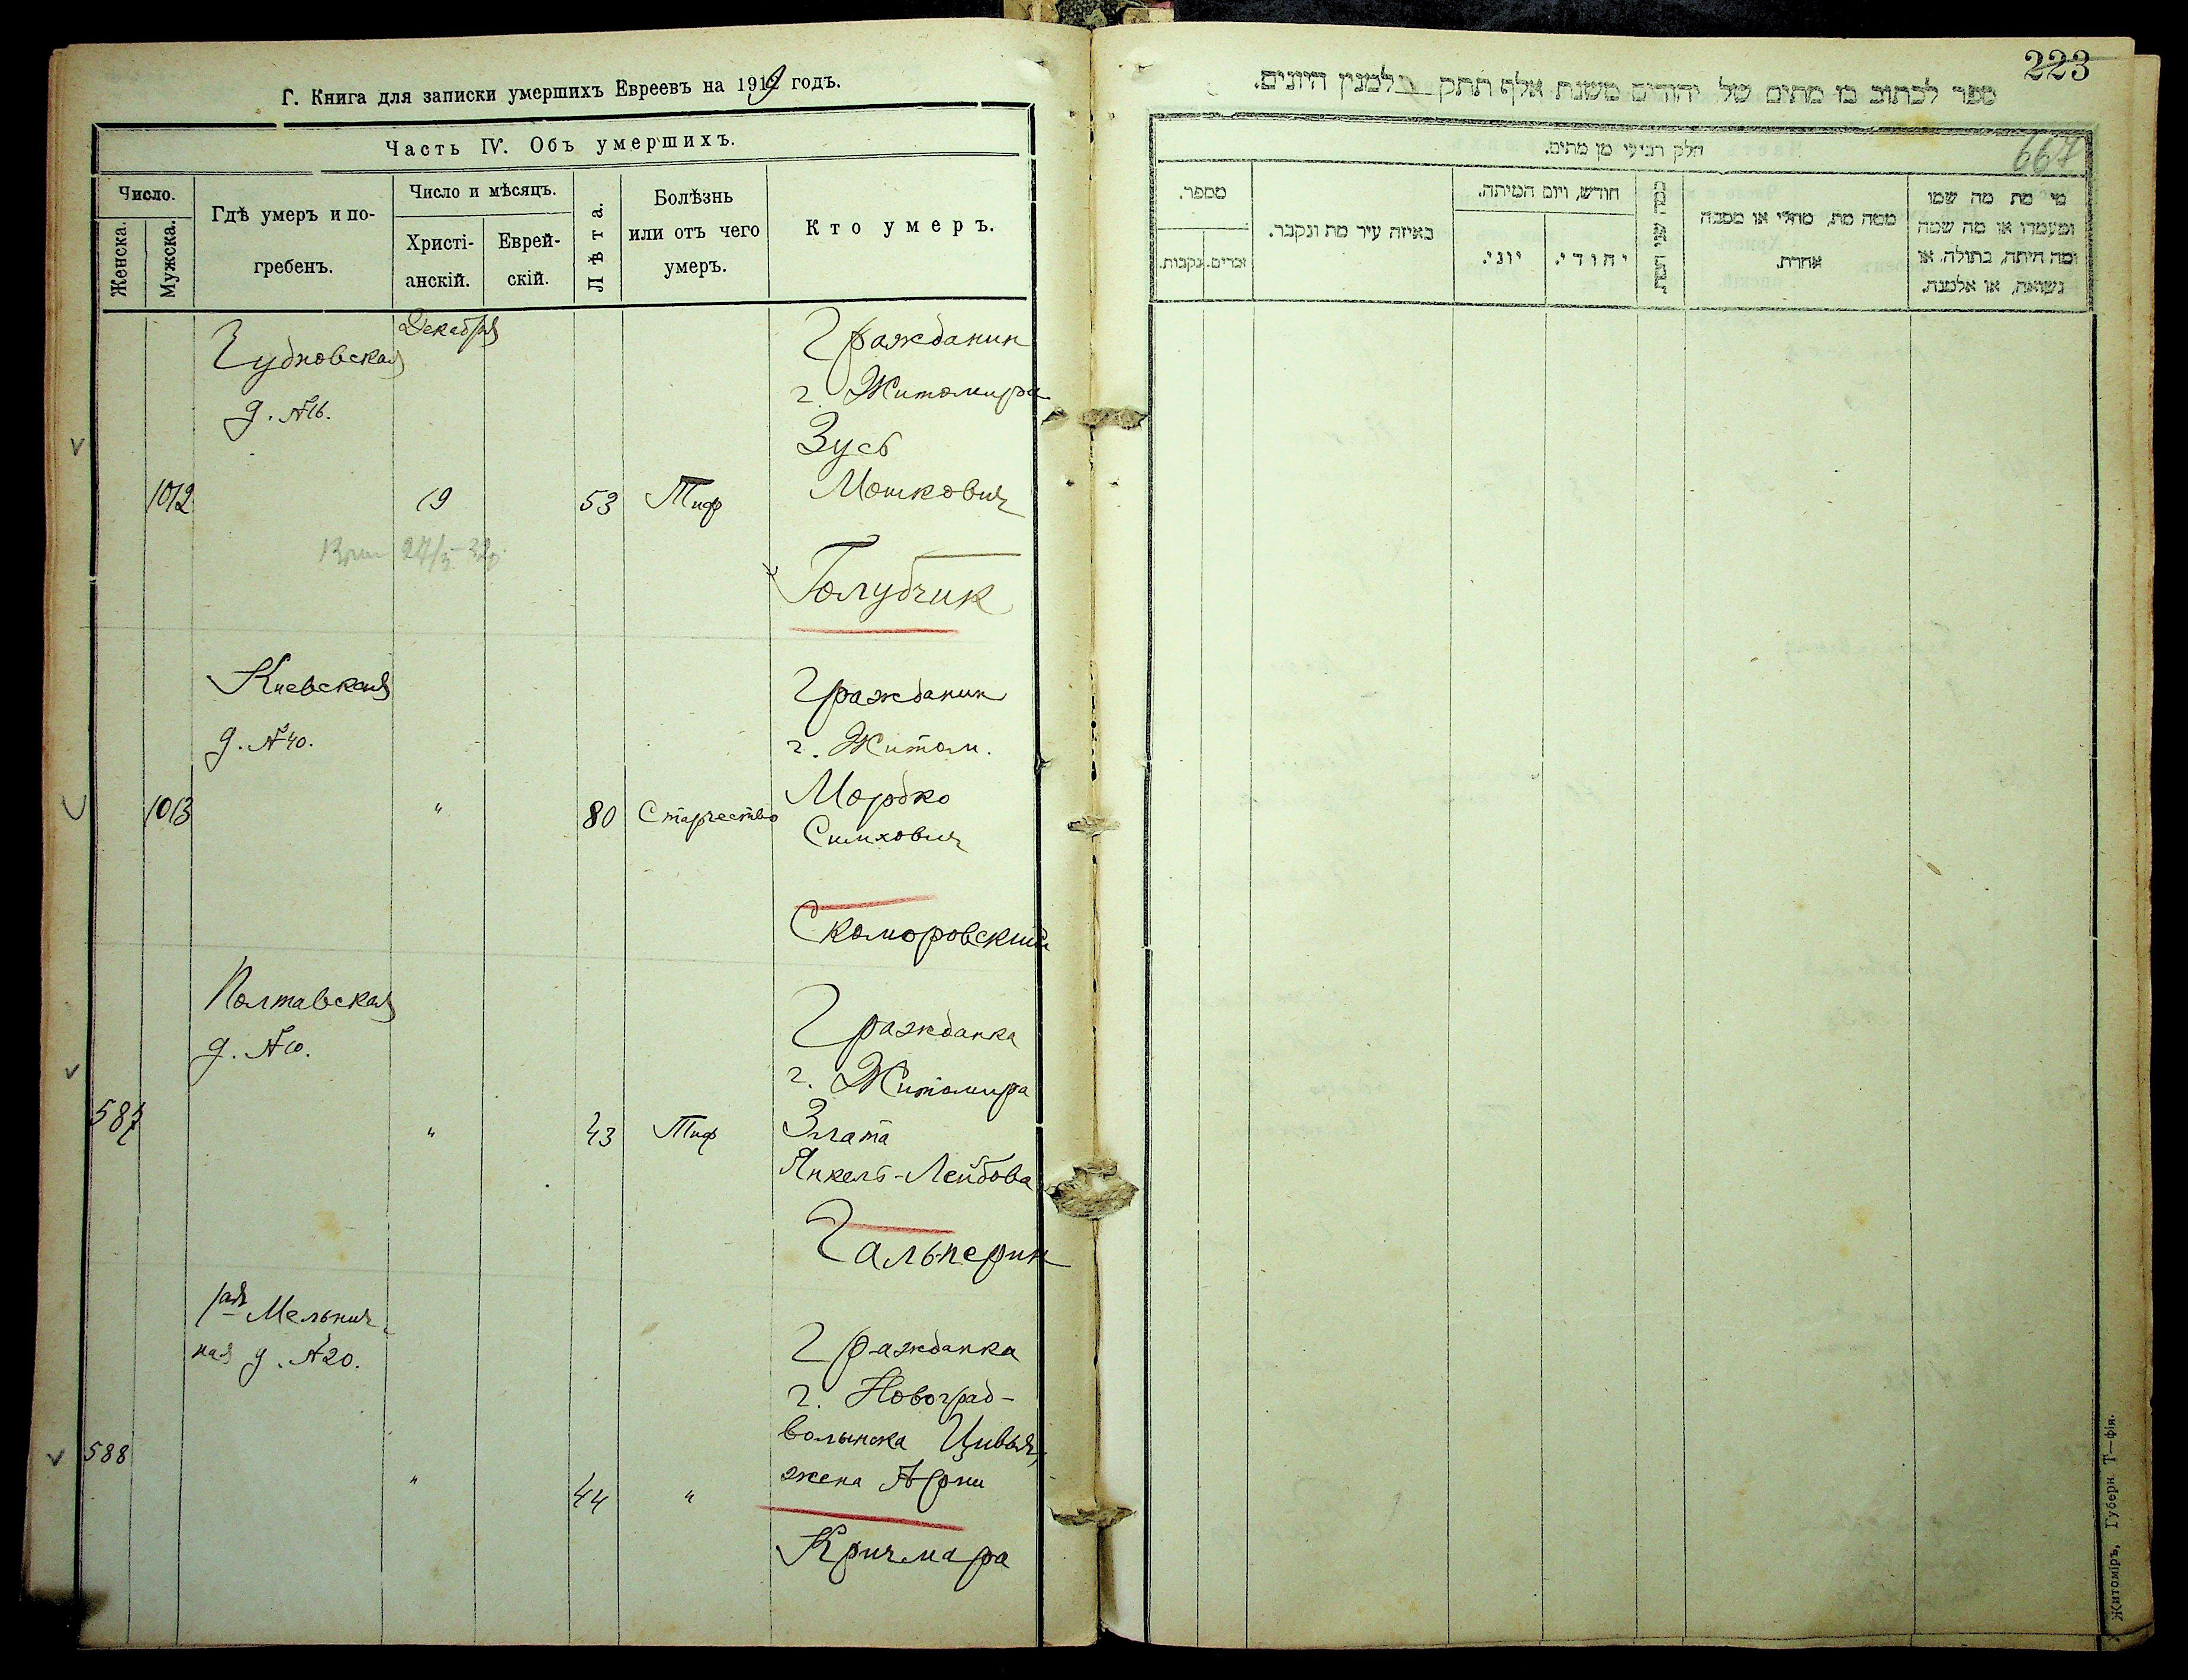 Г. Книга для записки умершихъ Евреевъ на 1919 годъ.
Часть IV. Объ умершихъ.
Число.
Женска.
Мужска.
Гдѣ умеръ и по-
гребенъ.
Число и мѣсяцъ.
Христі-
анскій.
Еврей-
скій.
Лѣта.
Болѣзнь
или отъ чего
умеръ.
Кто умеръ.
Чудновская
д. №16.
Декабря
1012
19
53
Тиф
Гражданин
г. Житомира
Зусь
Мошкович
Голубчик
27/5
Киевская
д. №40.
1013
"
80
Старчество
Гражданин
г. Житом.
Мордко
Симхович
Скоморовский
Полтавская
д. №10.
587
"
43
Тиф
Гражданка
г. Житомира
Злата
Янкель-Лейбова
Гальперин
1ая Мельнич-
ная д. №20.
588
"
44
"
Гражданка
г. Новоград-
волынска Цивья,
жена Арии
Кричмара
223
ספר לכתוב בו מתים של יהודים משנת אלף תתק למנין היונים.
667
חלק רביעי מן מתים.
מספר.
נקבות.
זכרים.
באיזה עיר מת ונקבר.
חודש, ויום המיתה.
יוני.
יהודי.
כמה שני חייו
ממה מת, מחלי או מסבה
אחרת.
מי מת מה שמו
ומעמדו או מה שמה
ומה היתה, בתולה, או
נשואה, או אלמנה.
Житоміръ, Губерн. Т—фія.